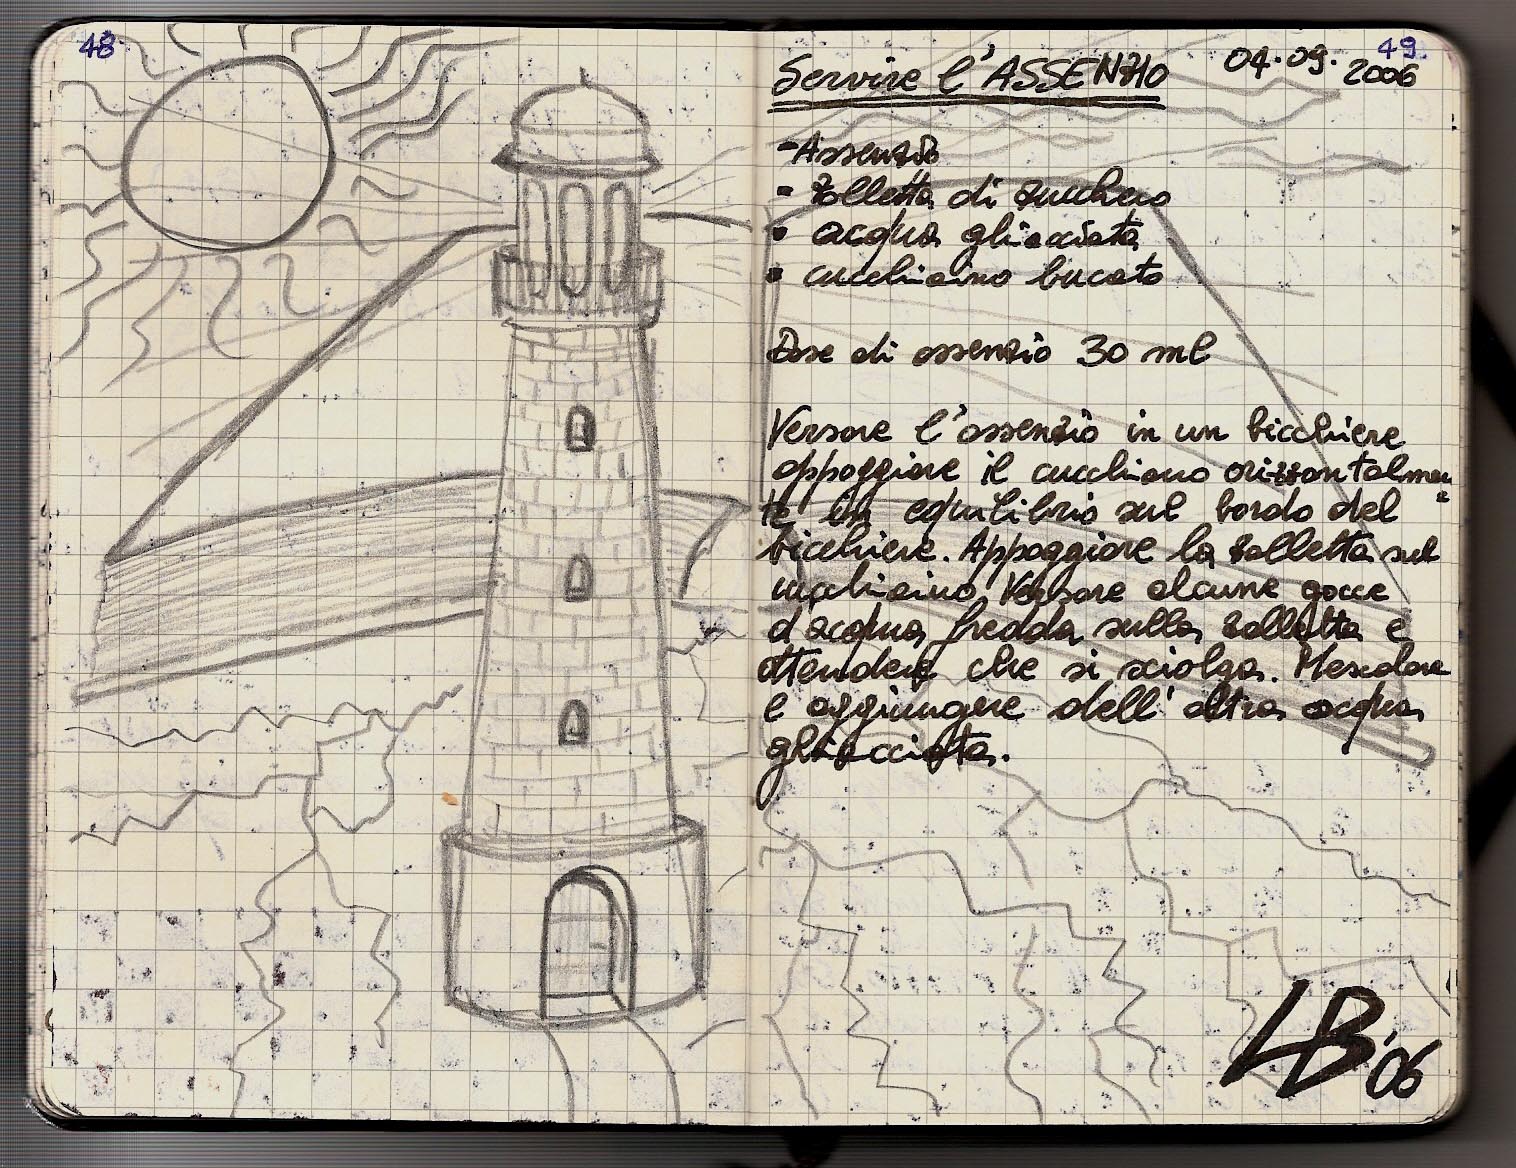 48
49
Servire l'ASSENZIO 04.09.2006
-Assenzio
- Zolletta di zucchero
- acqua ghiacciata
- cucchiaino bucato
Dose di assenzio 30 ml
Versare l'assenzio in un bicchiere
appoggiare il cucchiaino orizzontalmen=
te in equilibrio sul bordo del
bicchiere. Appoggiare la zolletta sul
cucchiaino Versare alcune gocce
d'acqua fredda sulla zolletta e
attendere che si sciolga. Mescolare
e aggiungere dell'altra acqua
ghiacciata.
LB'06